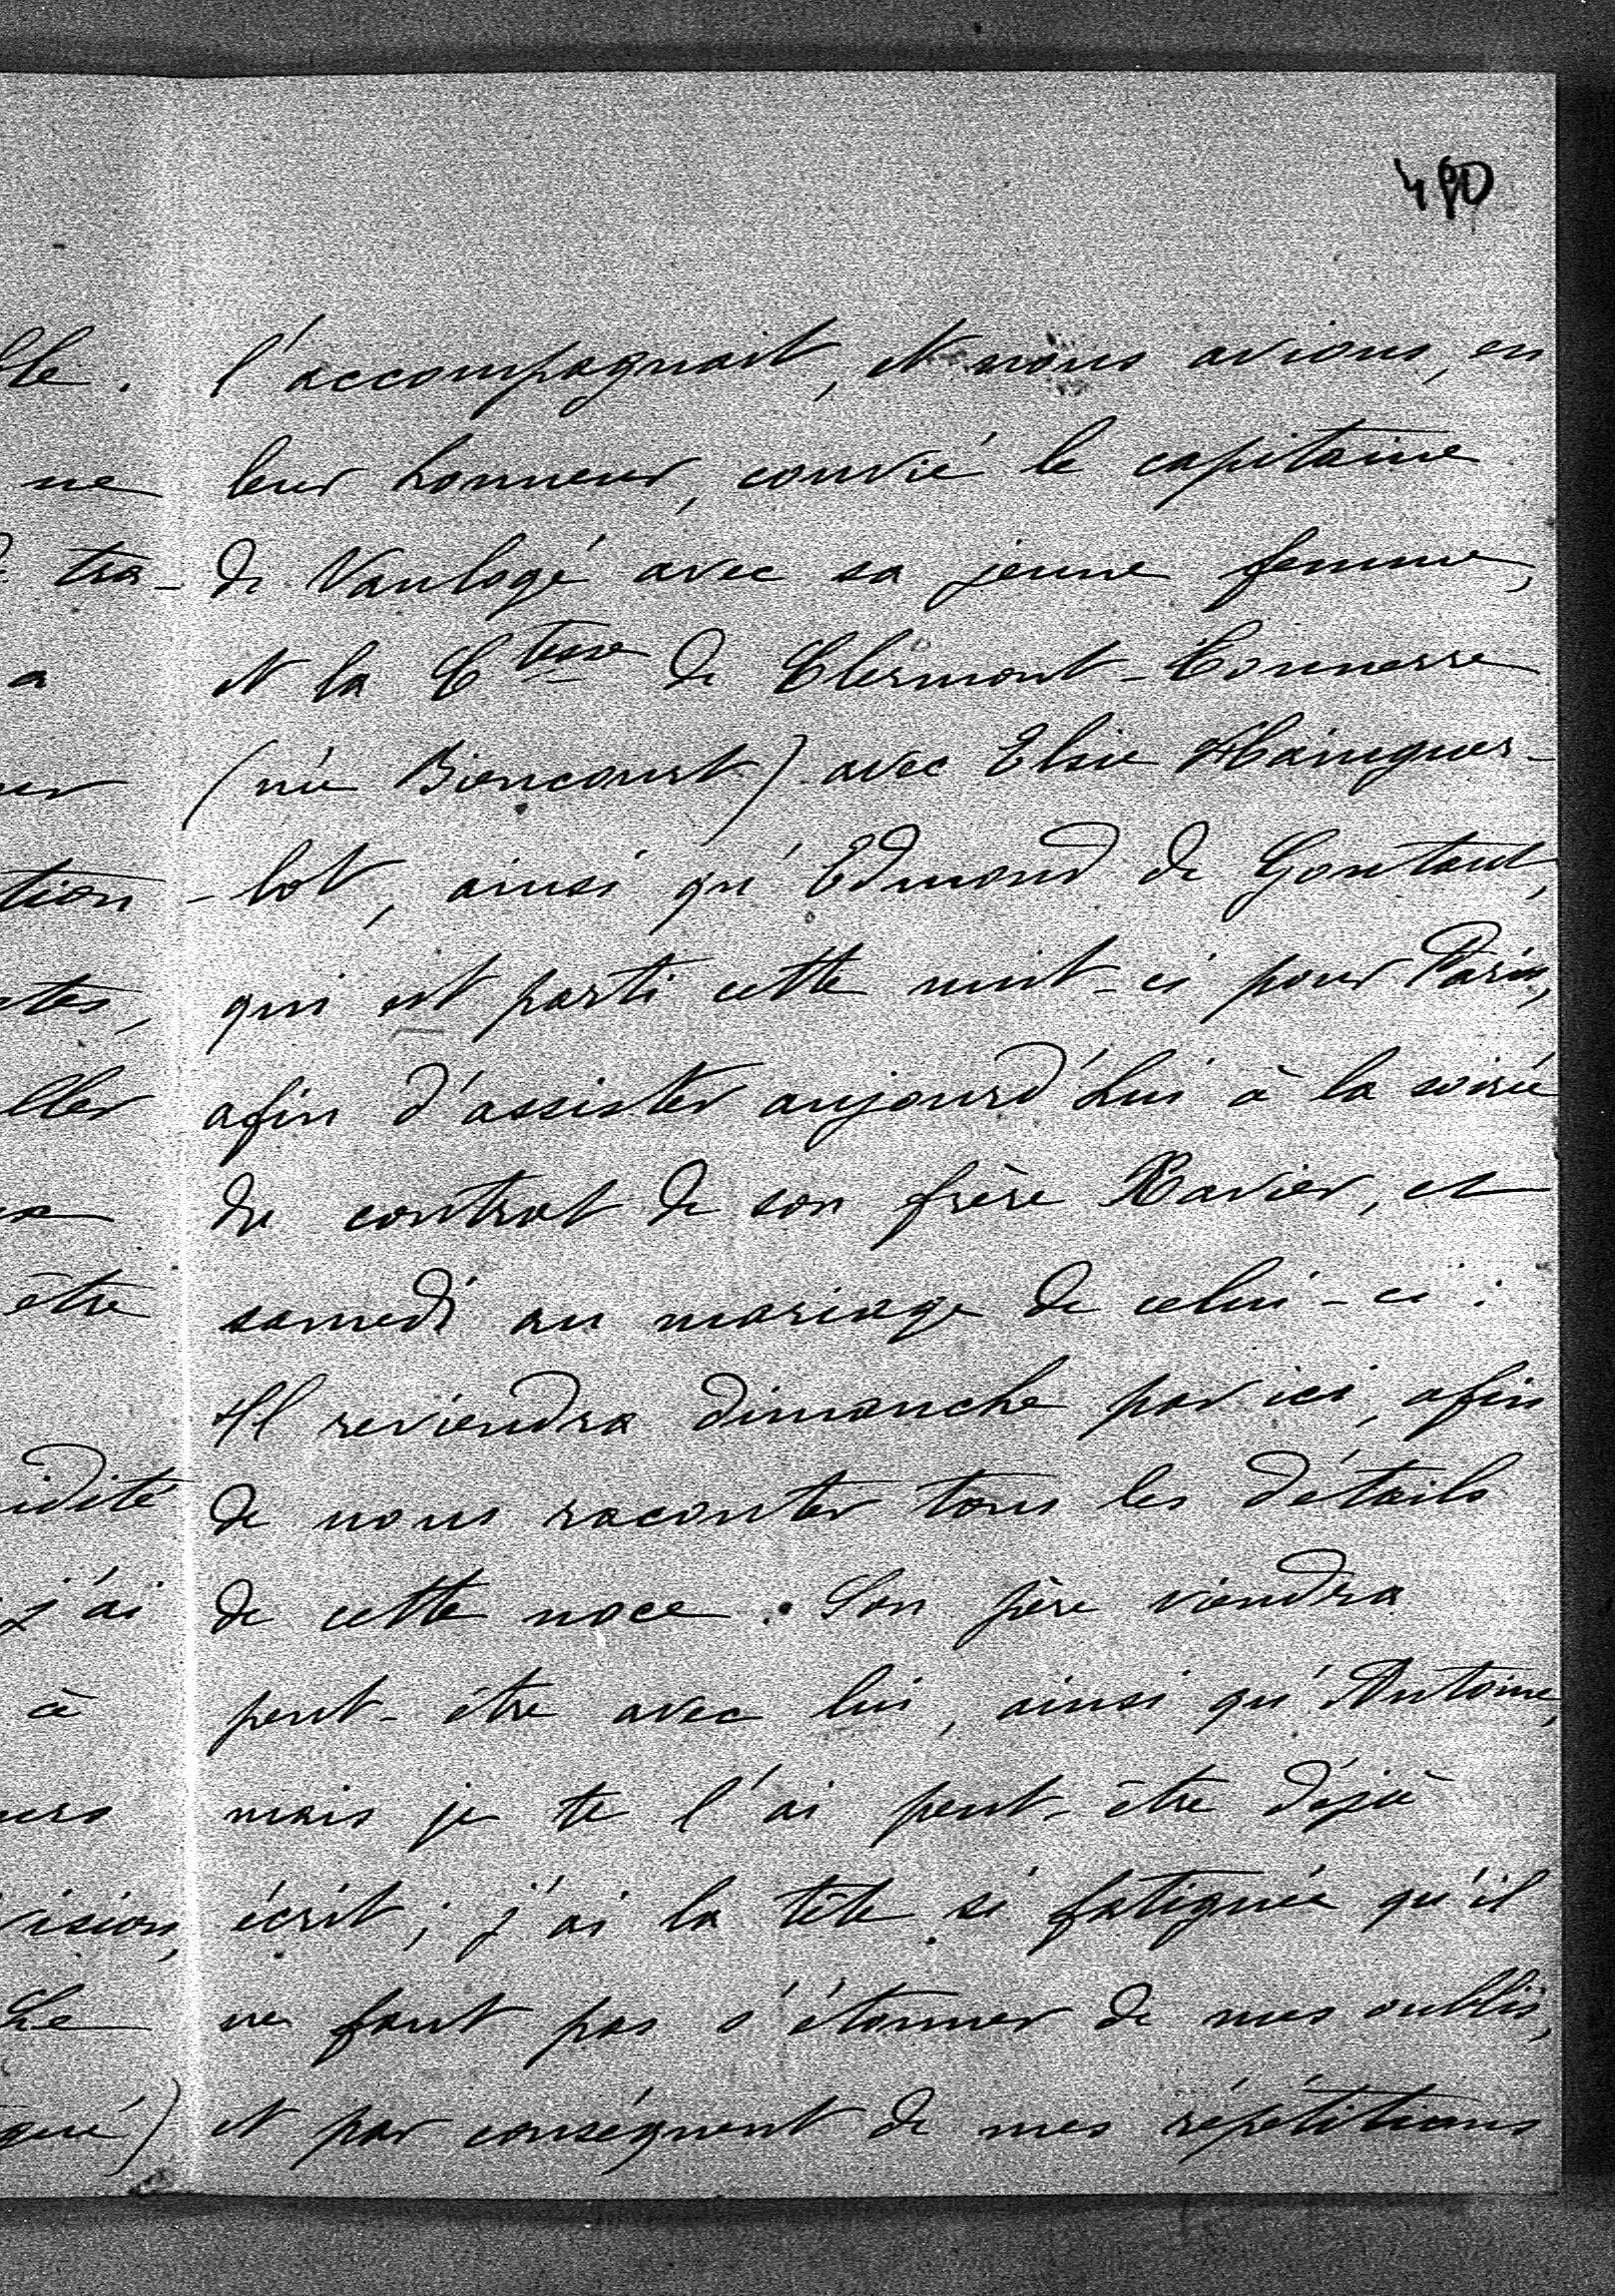 480
l'accompagnait, et nous avions, en
leur honneur, convié le capitaine
de Vaulogé avec sa jeune femme,
et la Ctesse de Clermont-Tonnerre
(née Biencourt) avec Elsie Hainguer-
-lot, ainsi qu'Edmond de Gontaut,
qui est parti cette nuit-ci pour Paris,
afin d'assister aujourd'hui à la soirée
du contrat de son frère Xavier, et
samedi au mariage de celui-ci.
Il reviendra dimanche par ici, afin
de nous raconter tous les détails
de cette noce. Son père viendra
peut-être avec lui, ainsi qu'Antoine,
mais je te l'ai peut-être déjà
écrit; j'ai la tête si fatiguée qu'il
ne faut pas s'étonner de mes oublis,
et par conséquent de mes répétitions